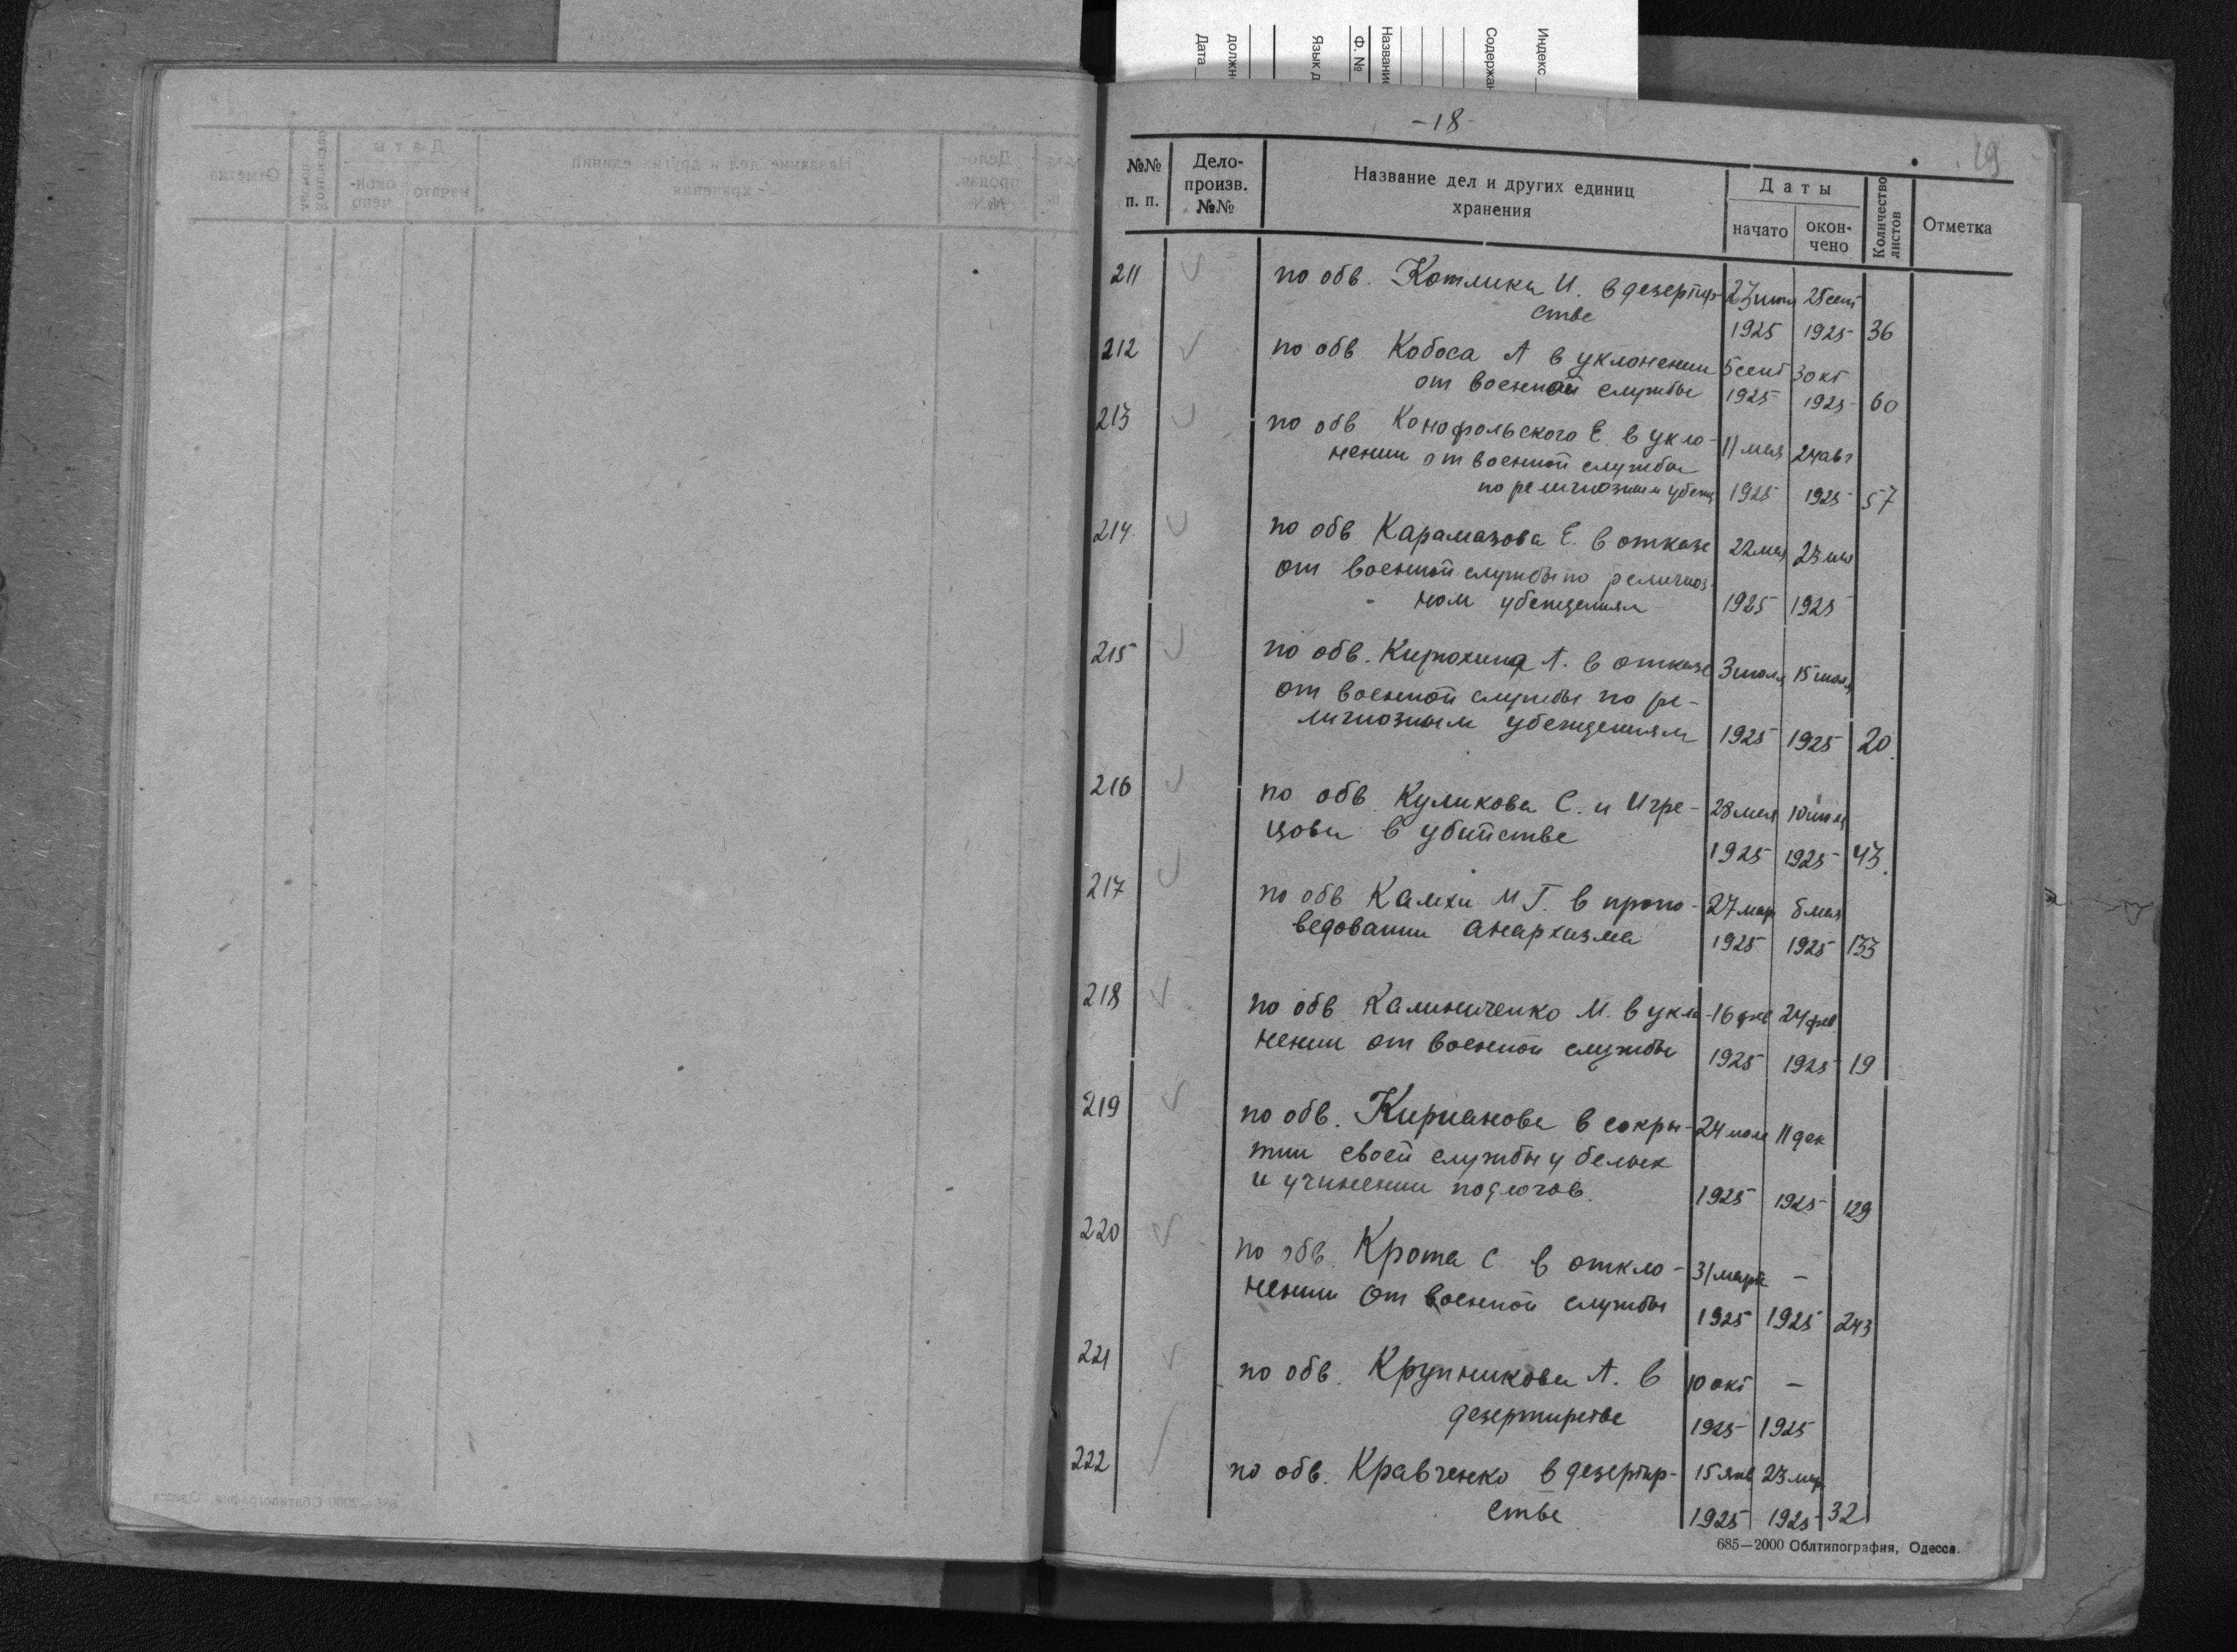 Индекс
Содержан
Название
Ф. №
Язык д
должн
Дата
-18-
19
№№ п. п.
Дело-произв. №№
Название дел и других единиц хранения
Даты
начато
окон-чено
Количество листов
Отметка
211 по обв. Котлика И. в дезертир- 28 сент
стве 1925 1925 36
212 по обв Кобоса А в уклонении 5 сент 30 кт
от военной службы 1925 1925 60
213 по обв Конофольского Е. в укло- 11 мая 24 авг
нении от военной службы
по религиозным убежд 1925 1925 57
214 по обв Карамазова Е. в отказе 22 мая 23
от военной службы по религиоз-
ном убеждениям 1925 1925
215 по обв. Кирюхина А. в отказе 3 июля 15 июля
от военной службы по ре-
лигиозным убеждениям 1925 1925 20
216 по обв. Куликова С. и Игре- 28 мая 10
цова в убийстве 1925 1925 43
217 по обв Камхи М Г. в пропо- 27 мар 5 мая
ведовании анархизма 1925 1925 133
218 по обв Калиниченко М. в укло- 16 фев 24 фев
нении от военной службы 1925 1925 19
219 по обв. Кирианова в сокры- 24 11 дек
тии своей службы у белых
и учинении подлогов. 1925 1925 129
220 по обв. Крота С в откло- 31 марта -
нении от военной службы 1925 1925 243
221 по обв. Крупникова А. в 10 окт -
дезертирстве 1925 1925
222 по обв. Кравченко в дезертир- 15 янв 23 мар
стве 1925 1925 32
685—2000 Облтипография, Одесса.